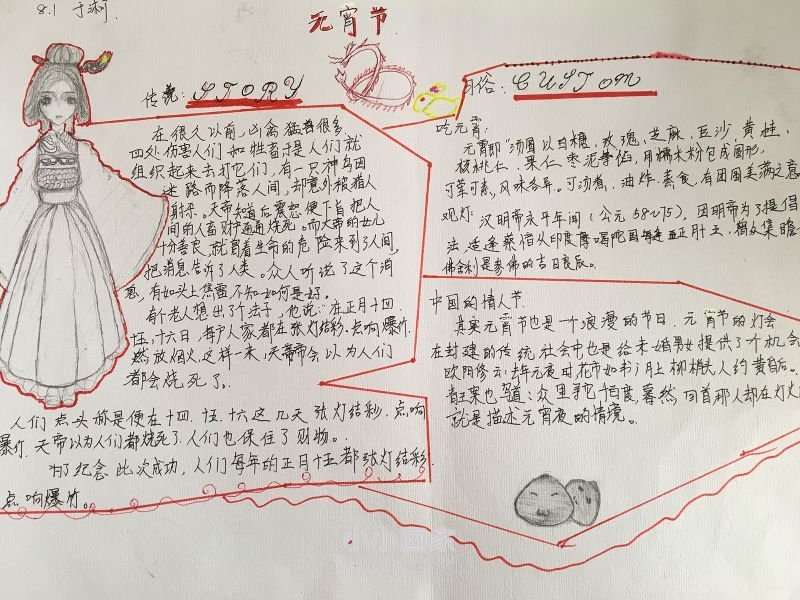 8.1 于
元宵节
传说: STORY
在很久以前,凶禽猛兽很多,
四处伤害人们和牲畜,于是人们就
组织起来去打它们,有一只神鸟因
迷路而降落人间,却意外被猎人
射死。天帝知道后震怒,便下旨把人
间的人畜财产通通烧死。而天帝的女儿
十分善良,就冒着生命的危险来到了人间,
把消息告诉了人类。众人听说了这个消
息,有如头上焦雷,不知如何是好。
有个老人想出了个法子,他说:“在正月十四、
十五、十六日,每户人家都在张灯结彩、点响爆竹、
燃放烟火,这样一来,天帝会以为人们
都会烧死了。
人们点头称是便在十四、十五、十六这几天张灯结彩、点响
爆竹,天帝以为人们都烧死了,人们也保住了财物。
为了纪念此次成功,人们每年的正月十五都张灯结彩,
点响爆竹。
俗: CUSTOM
吃元宵:
元宵即“汤圆以白糖、玫瑰、芝麻、豆沙、黄桂、
核桃仁、果仁、枣泥等馅,用糯米粉包成圆形,
可荤可素,风味各异。可汤煮、油炸、蒸食,有团圆美满之意
观灯: 汉明帝永平年间(公元58-75),因明帝为了提倡
法 蔡愔从印度摩喝陀国 正月十五,僧众集瞻
佛舍利是参佛的吉日良辰。
中国的情人节
其实元宵节也是一个浪漫的节日,元宵节的灯会
在封建的传统社会中也是给未婚男女提供了个机会
欧阳修云:去年元夜时花市如书;月上柳梢头人约黄昏后。
写道:众里寻它千百度,蓦然回首那人却在灯火
就是描述元宵夜的情境。